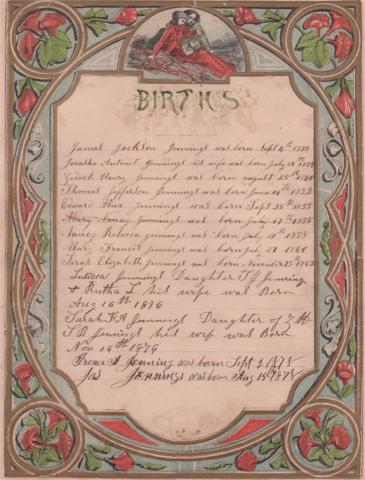 BIRTHS
James Jackson Jennings was born Sept 6th
Jennings his wife was born July
Zadock Henry Jennings was born august 25th
Thomas Jefferson Jennings was born June 14th
Edward Jennings was born Sept 25th
Jennings was born July 17th 1855
Nancy Rebecca Jennings was born July 17th 1855
Mary Francis Jennings was born 1860
Sarah Elizabeth Jennings was born November 25th
Luticia Jennings Daughter T J Jennings
& Rutha L his wife was Born
Aug 16th 1876
Sarah Jennings Daughter of Z H
his wife was Born
Nov 16th 1876
Jennings was born Sept 2 1878
Jas Jennings was born Aug 15th 1878